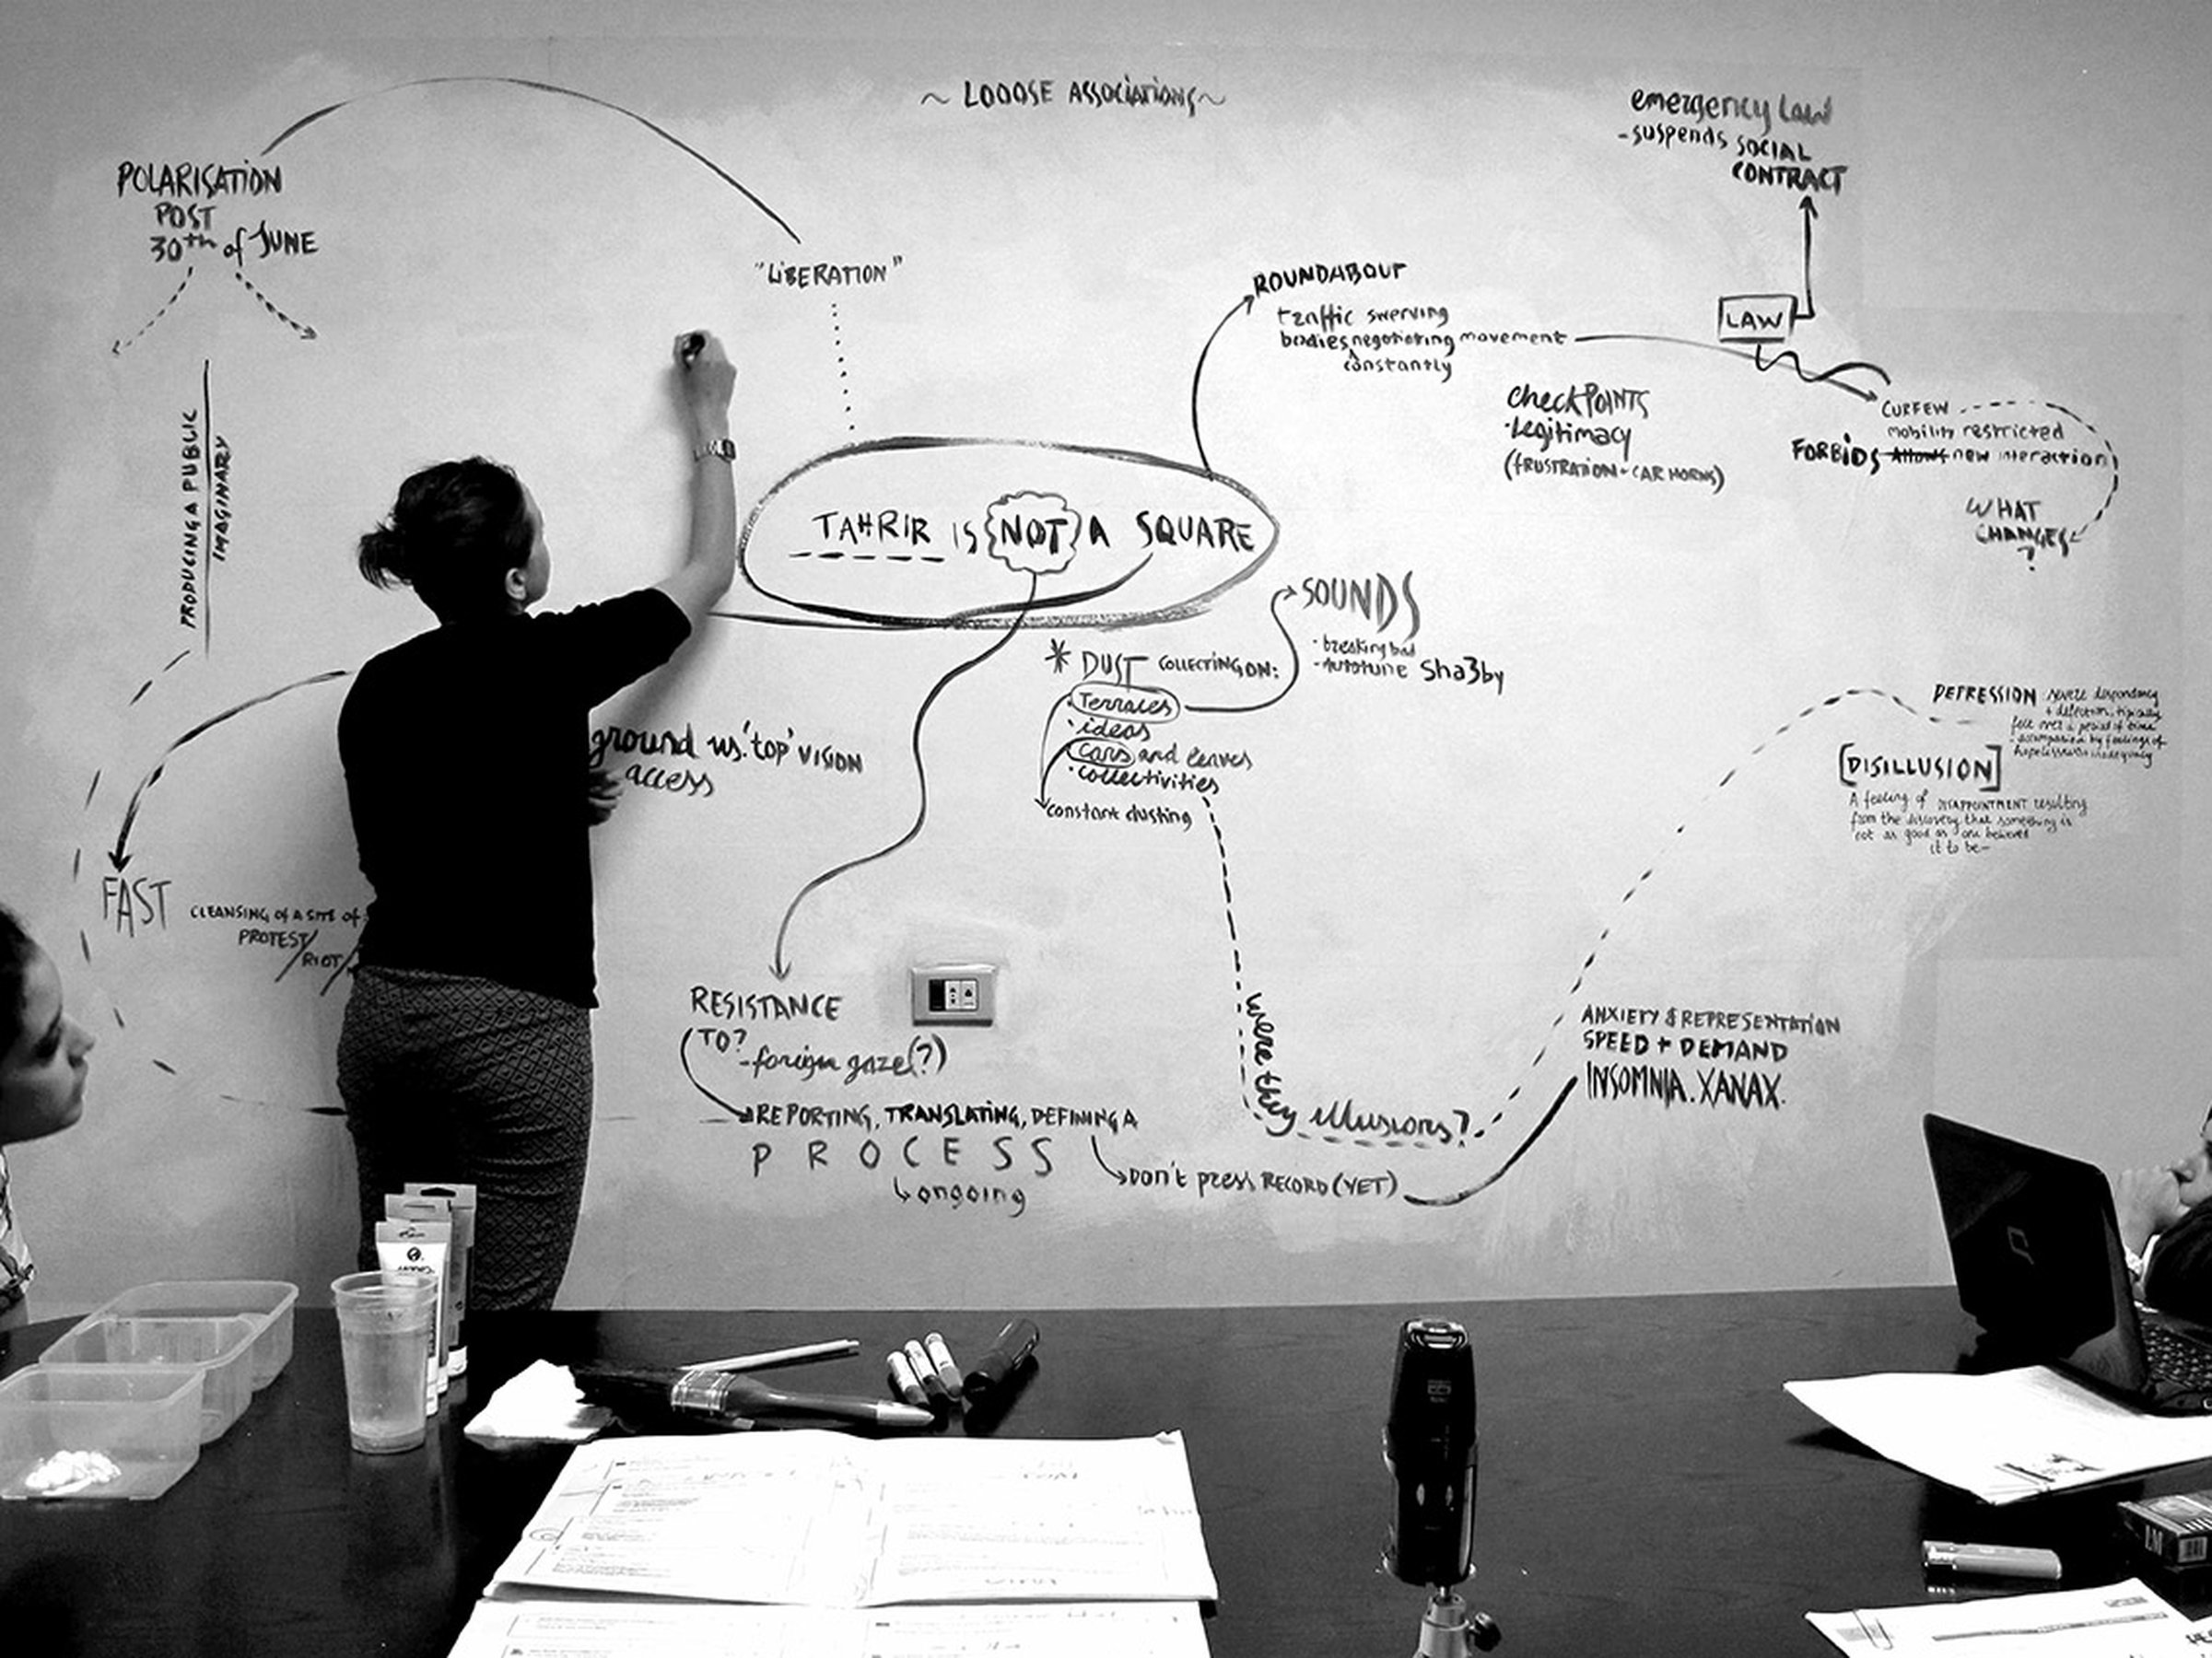 ~ LOOOSE ASSOCIATIONS ~
POLARISATION
POST
30th of JUNE
"LIBERATION"
PRODUCING A PUBLIC
IMAGINARY
emergency law
- suspends SOCIAL
CONTRACT
LAW
ROUNDABOUT
traffic swerving
bodies negotiating movement
constantly
CheckPOINTS
· Legitimacy
(FRUSTRATION - CAR HORNS)
CURFEW
mobility restricted
FORBIDS Allows new interaction
WHAT
CHANGES
?
TAHRIR IS NOT A SQUARE
SOUNDS
· breaking bad
- Autotune Sha3by
* DUST COLLECTING ON:
· Terraces
· ideas
· cars and leaves
· collectivities
constant dusting
ground vs. 'top' VISION
access
FAST
CLEANSING of A SITE of
PROTEST/
RIOT/
DEPRESSION severe despondency
+ dejection, typically
felt over a period of time
- accompanied by feelings of
hopelessness inadequacy
[DISILLUSION]
A feeling of DISAPPOINTMENT resulting
from the discovery that something is
not as good as one believed
it to be -
RESISTANCE
TO?
- foreign gaze(?)
REPORTING, TRANSLATING, DEFINING A
PROCESS
ongoing
were they illusions?
DON'T press RECORD (YET)
ANXIETY & REPRESENTATION
SPEED + DEMAND
INSOMNIA. XANAX.